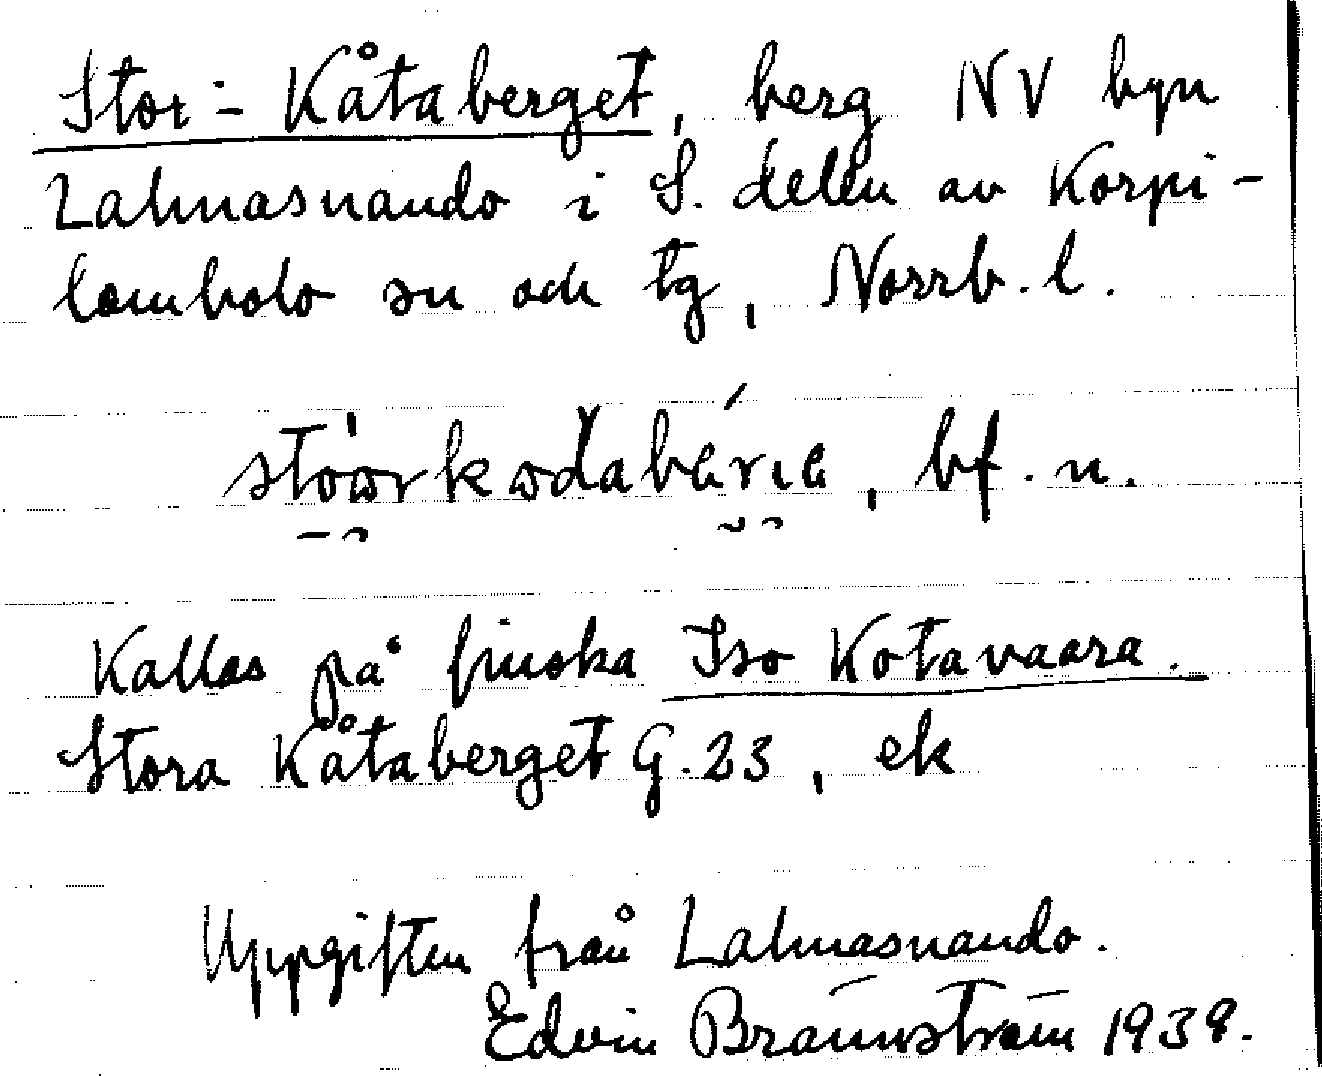 Stor-Kåtaberget, berg NV byn
Lahnasnando i S. delen av Korpi-
lombolo sn och tg, Norrb. l.
bf. n.
Kallas på finska Iso Kotavaara.
Stora Kåtaberget G. 23, ek
Uppgiften från Lahnasnando.
Edvin Brännström 1938.